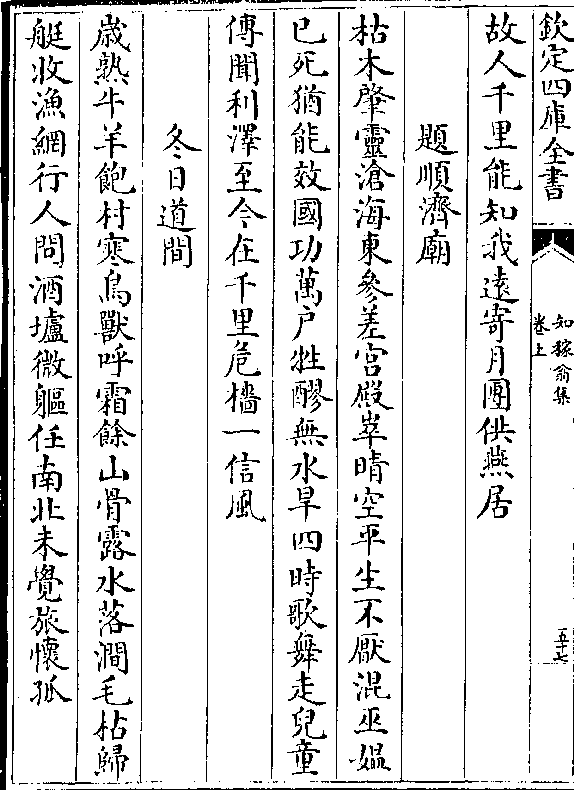 欽定四庫全書
知稼翁集
卷上
五十七
故人千里能知我遠寄月團供燕居
題順濟廟
枯木肇靈滄海東參差宮殿崒晴空平生不厭混巫媼
已死猶能效國功萬户牲醪無水旱四時歌舞走兒童
傳聞利澤至今在千里危檣一信風
冬日道間
歲熟牛羊飽村寒鳥獸呼霜餘山骨露水落澗毛枯歸
艇收漁網行人問酒壚微軀任南北未覺旅懷孤